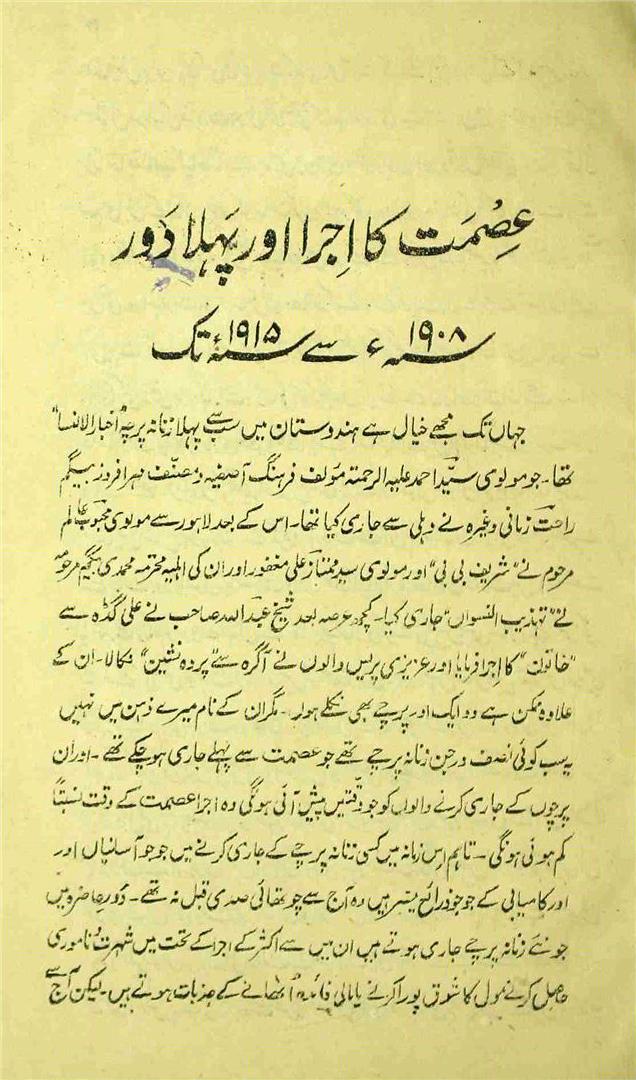 عِصْمَت کا اِجرا اور پَہلا دَور
سنہ ۱۹۰۸ء سے سنہ ۱۹۱۵ء تک
جہاں تک مجھے خیال ہے ہندوستان میں سب سے پہلا زنانہ پرچہ "اخبار النسا"
تھا۔ جو مولوی سیّد احمد علیہ الرحمتہ مؤلف فرہنگ آصفیہ و مصنّف مہر افروز بیگم
راحت زمانی وغیرہ نے دہلی سے جاری کیا تھا۔ اس کے بعد لاہور سے مولوی محبوب عالم
مرحوم نے "شریف بی بی" اور مولوی سید ممتاز علی مغفور اور ان کی اہلیہ محترمہ محمدی بیگم مرحومہ
نے "تہذیب النسواں" جاری کیا۔ کچھ عرصہ بعد شیخ عبداللہ صاحب نے علی گڈھ سے
"خاتون" کا اجرا فرمایا اور عزیزی پریس والوں نے آگرہ سے "پردہ نشین" نکالا۔ ان کے
علاوہ ممکن ہے دو ایک اور پرچے بھی نکلے ہوں۔ مگر ان کے نام میرے ذہن میں نہیں
یہ سب کوئی نصف درجن زنانہ پرچے تھے جو عصمت سے پہلے جاری ہو چکے تھے۔ اور ان
پرچوں کے جاری کرنے والوں کو جو دقّتیں پیش آئی ہونگی وہ اجرا عصمت کے وقت نسبتاً
کم ہوئی ہونگی۔ تاہم اِس زمانہ میں کسی زنانہ پرچے کے جاری کرنے میں جو جو آسانیاں اور
اور کامیابی کے جو جو ذرائع میسر ہیں وہ آج سے چوتھائی صدی قبل نہ تھے۔ دَور حاضرہ میں
جو نئے زنانہ پرچے جاری ہوتے ہیں ان میں سے اکثر کے اجرا کے تحت میں شہرت و ناموری
حاصل کرنے کا شوق پورا کرنے یا مالی فائدہ اٹھانے کے جذبات ہوتے ہیں۔ لیکن آج سے